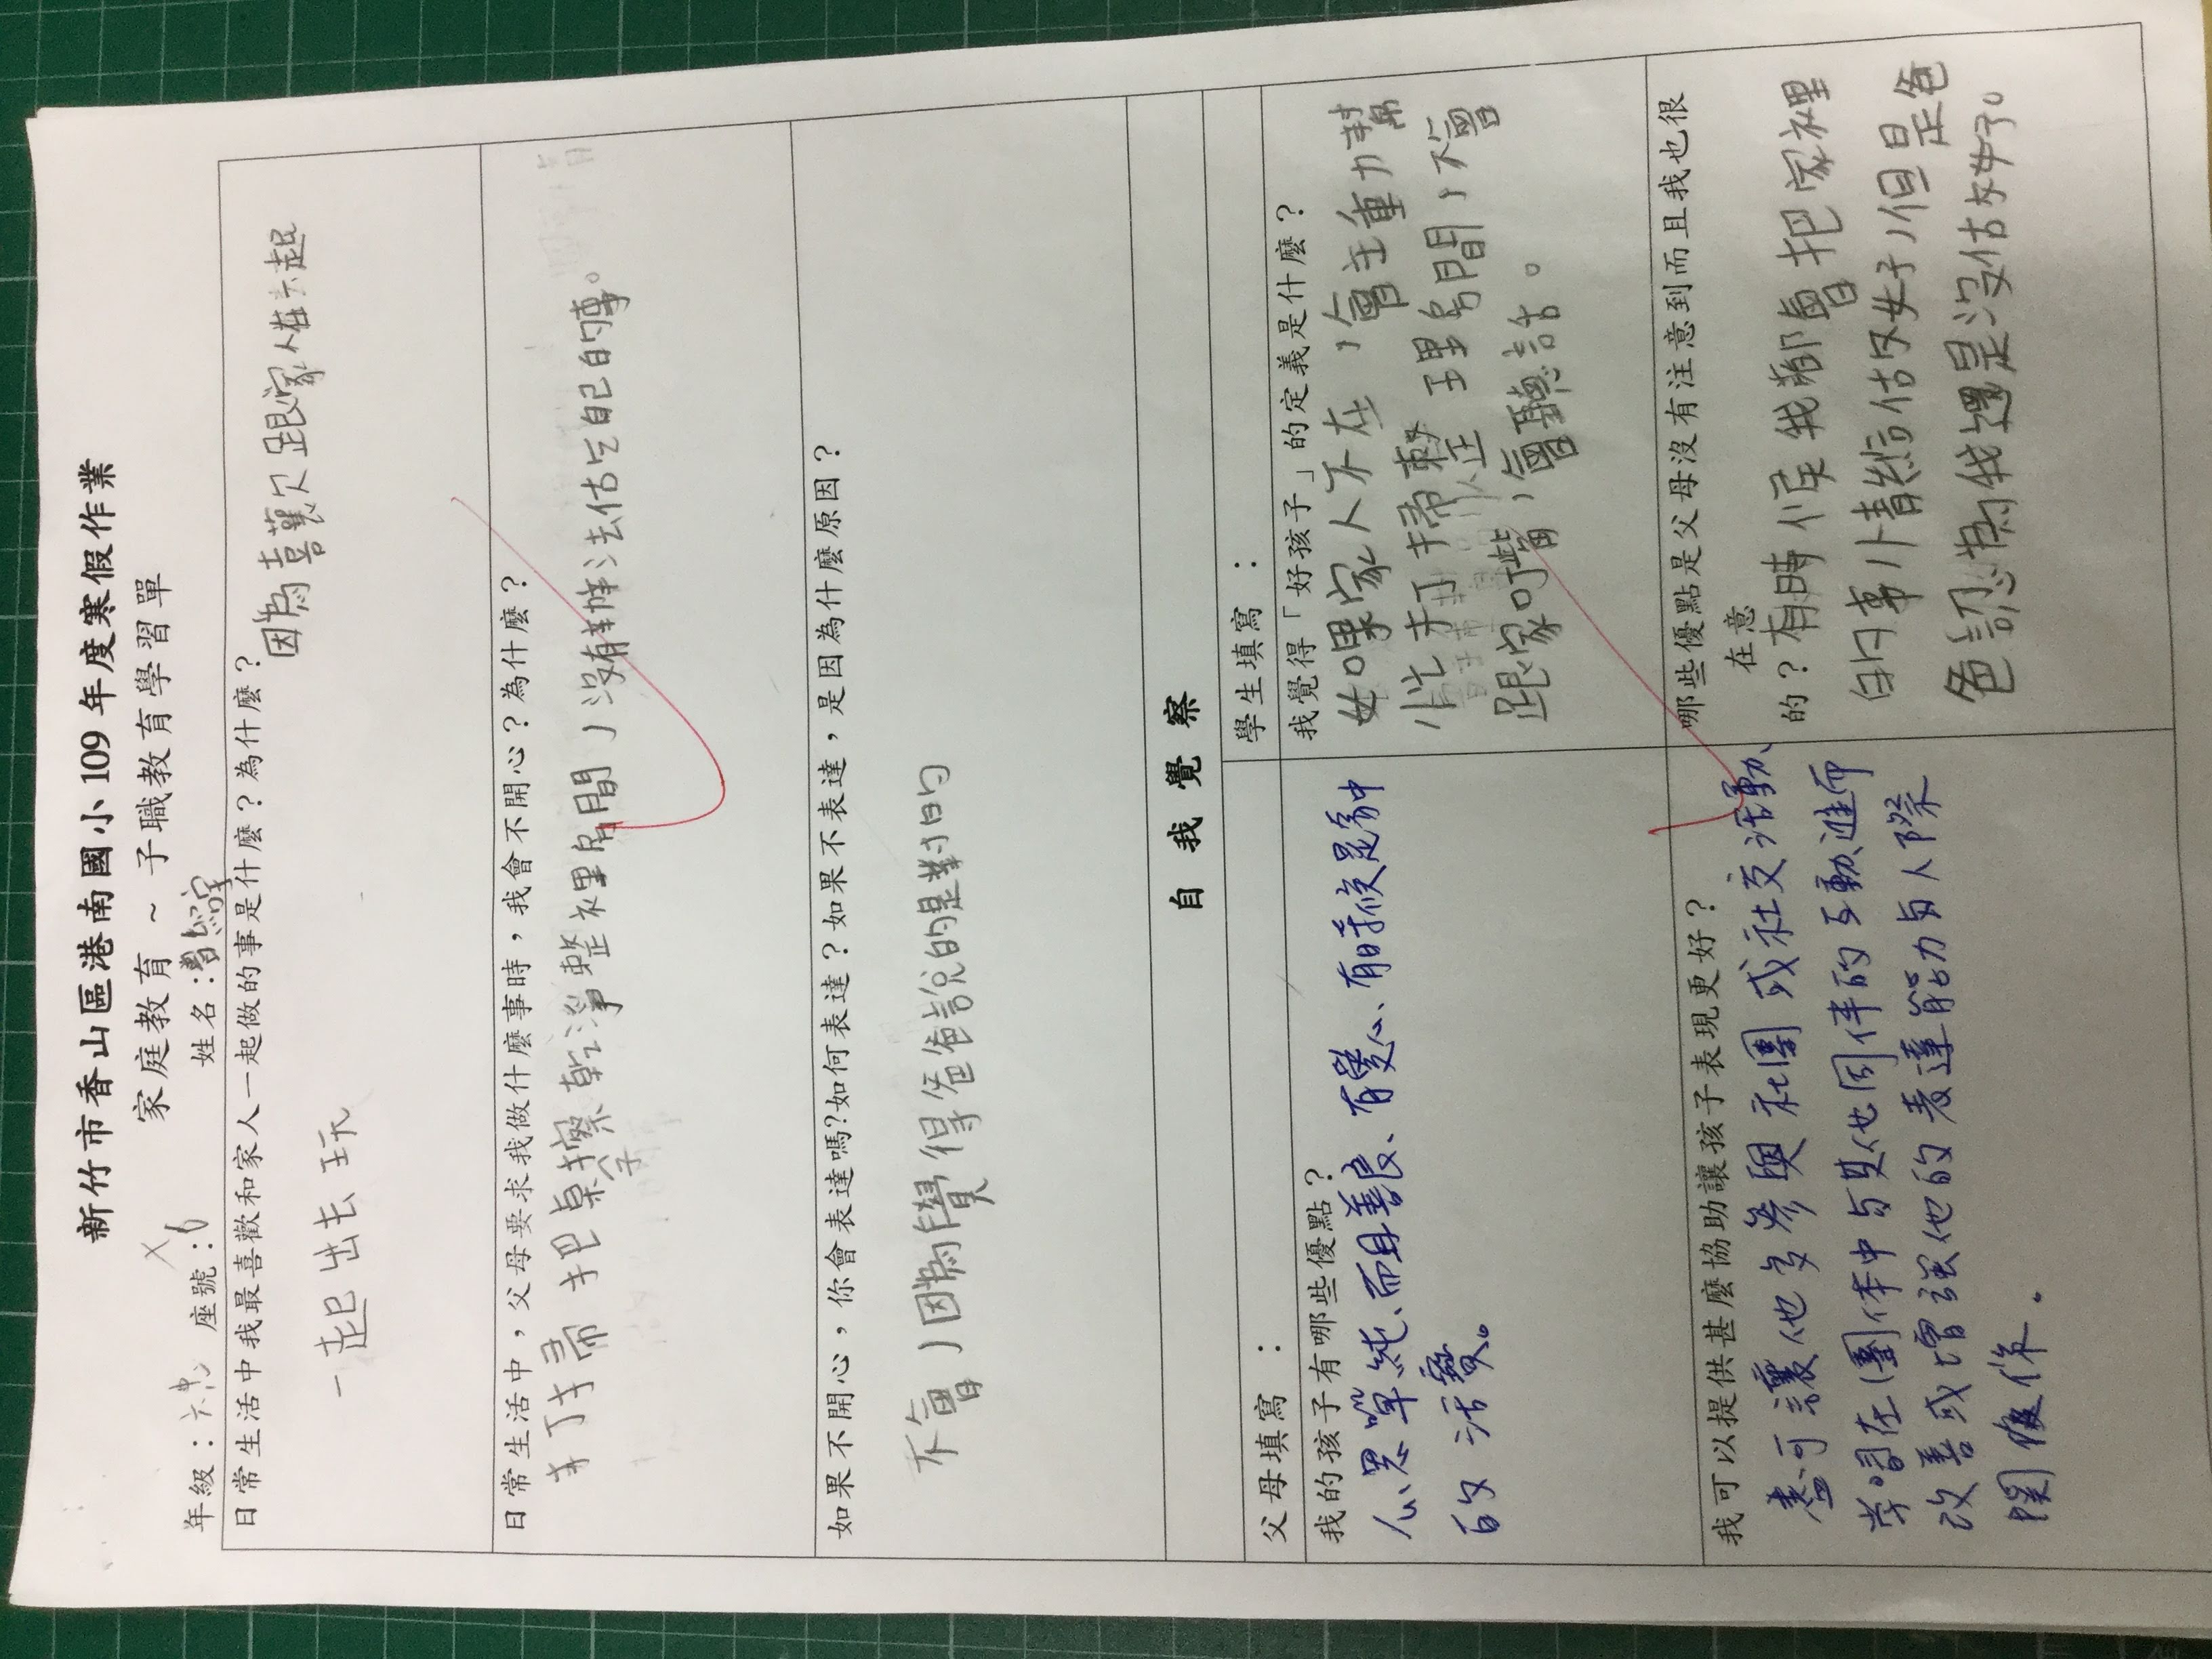 新竹市香山區港南國小109年度寒假作業
家庭教育～子職教育學習單
年級：六忠 座號：6 姓名：
日常生活中我最喜歡和家人一起做的事是什麼？為什麼？
一起出去玩
因為喜歡跟家人在一起
日常生活中，父母要求我做什麼事時，我會不開心？為什麼？
打掃把桌擦乾淨整裡房間，沒有辦法做自己的事。
如果不開心，你會表達嗎?如何表達？如果不表達，是因為什麼原因？
不會，因為覺得爸爸說的是對的
自我覺察
父母填寫：
學生填寫：
我的孩子有哪些優點？
心思單純、而且善良、有愛心、有時候是家中
的活寶。
我覺得「好孩子」的定義是什麼？
如果家人不在，會主動幫
忙打掃整理房間，不會
跟家叮嘴，會聽話。
我可以提供甚麼協助讓孩子表現更好？
盡可讓他多參與社團或社交活動、
學習在團体中与其他同伴的互動進而
改善或增強他的表達能力与人際
関係。
哪些優點是父母沒有注意到而且我也很
在意
的？有時候我都會把家裡
的事情做好，但是爸
爸認為我還是沒做好。